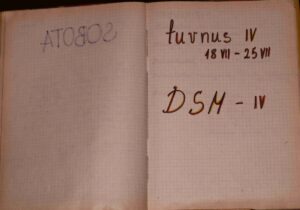 SOBOTA
turnus IV
18 VII - 25 VII
DSM - IV